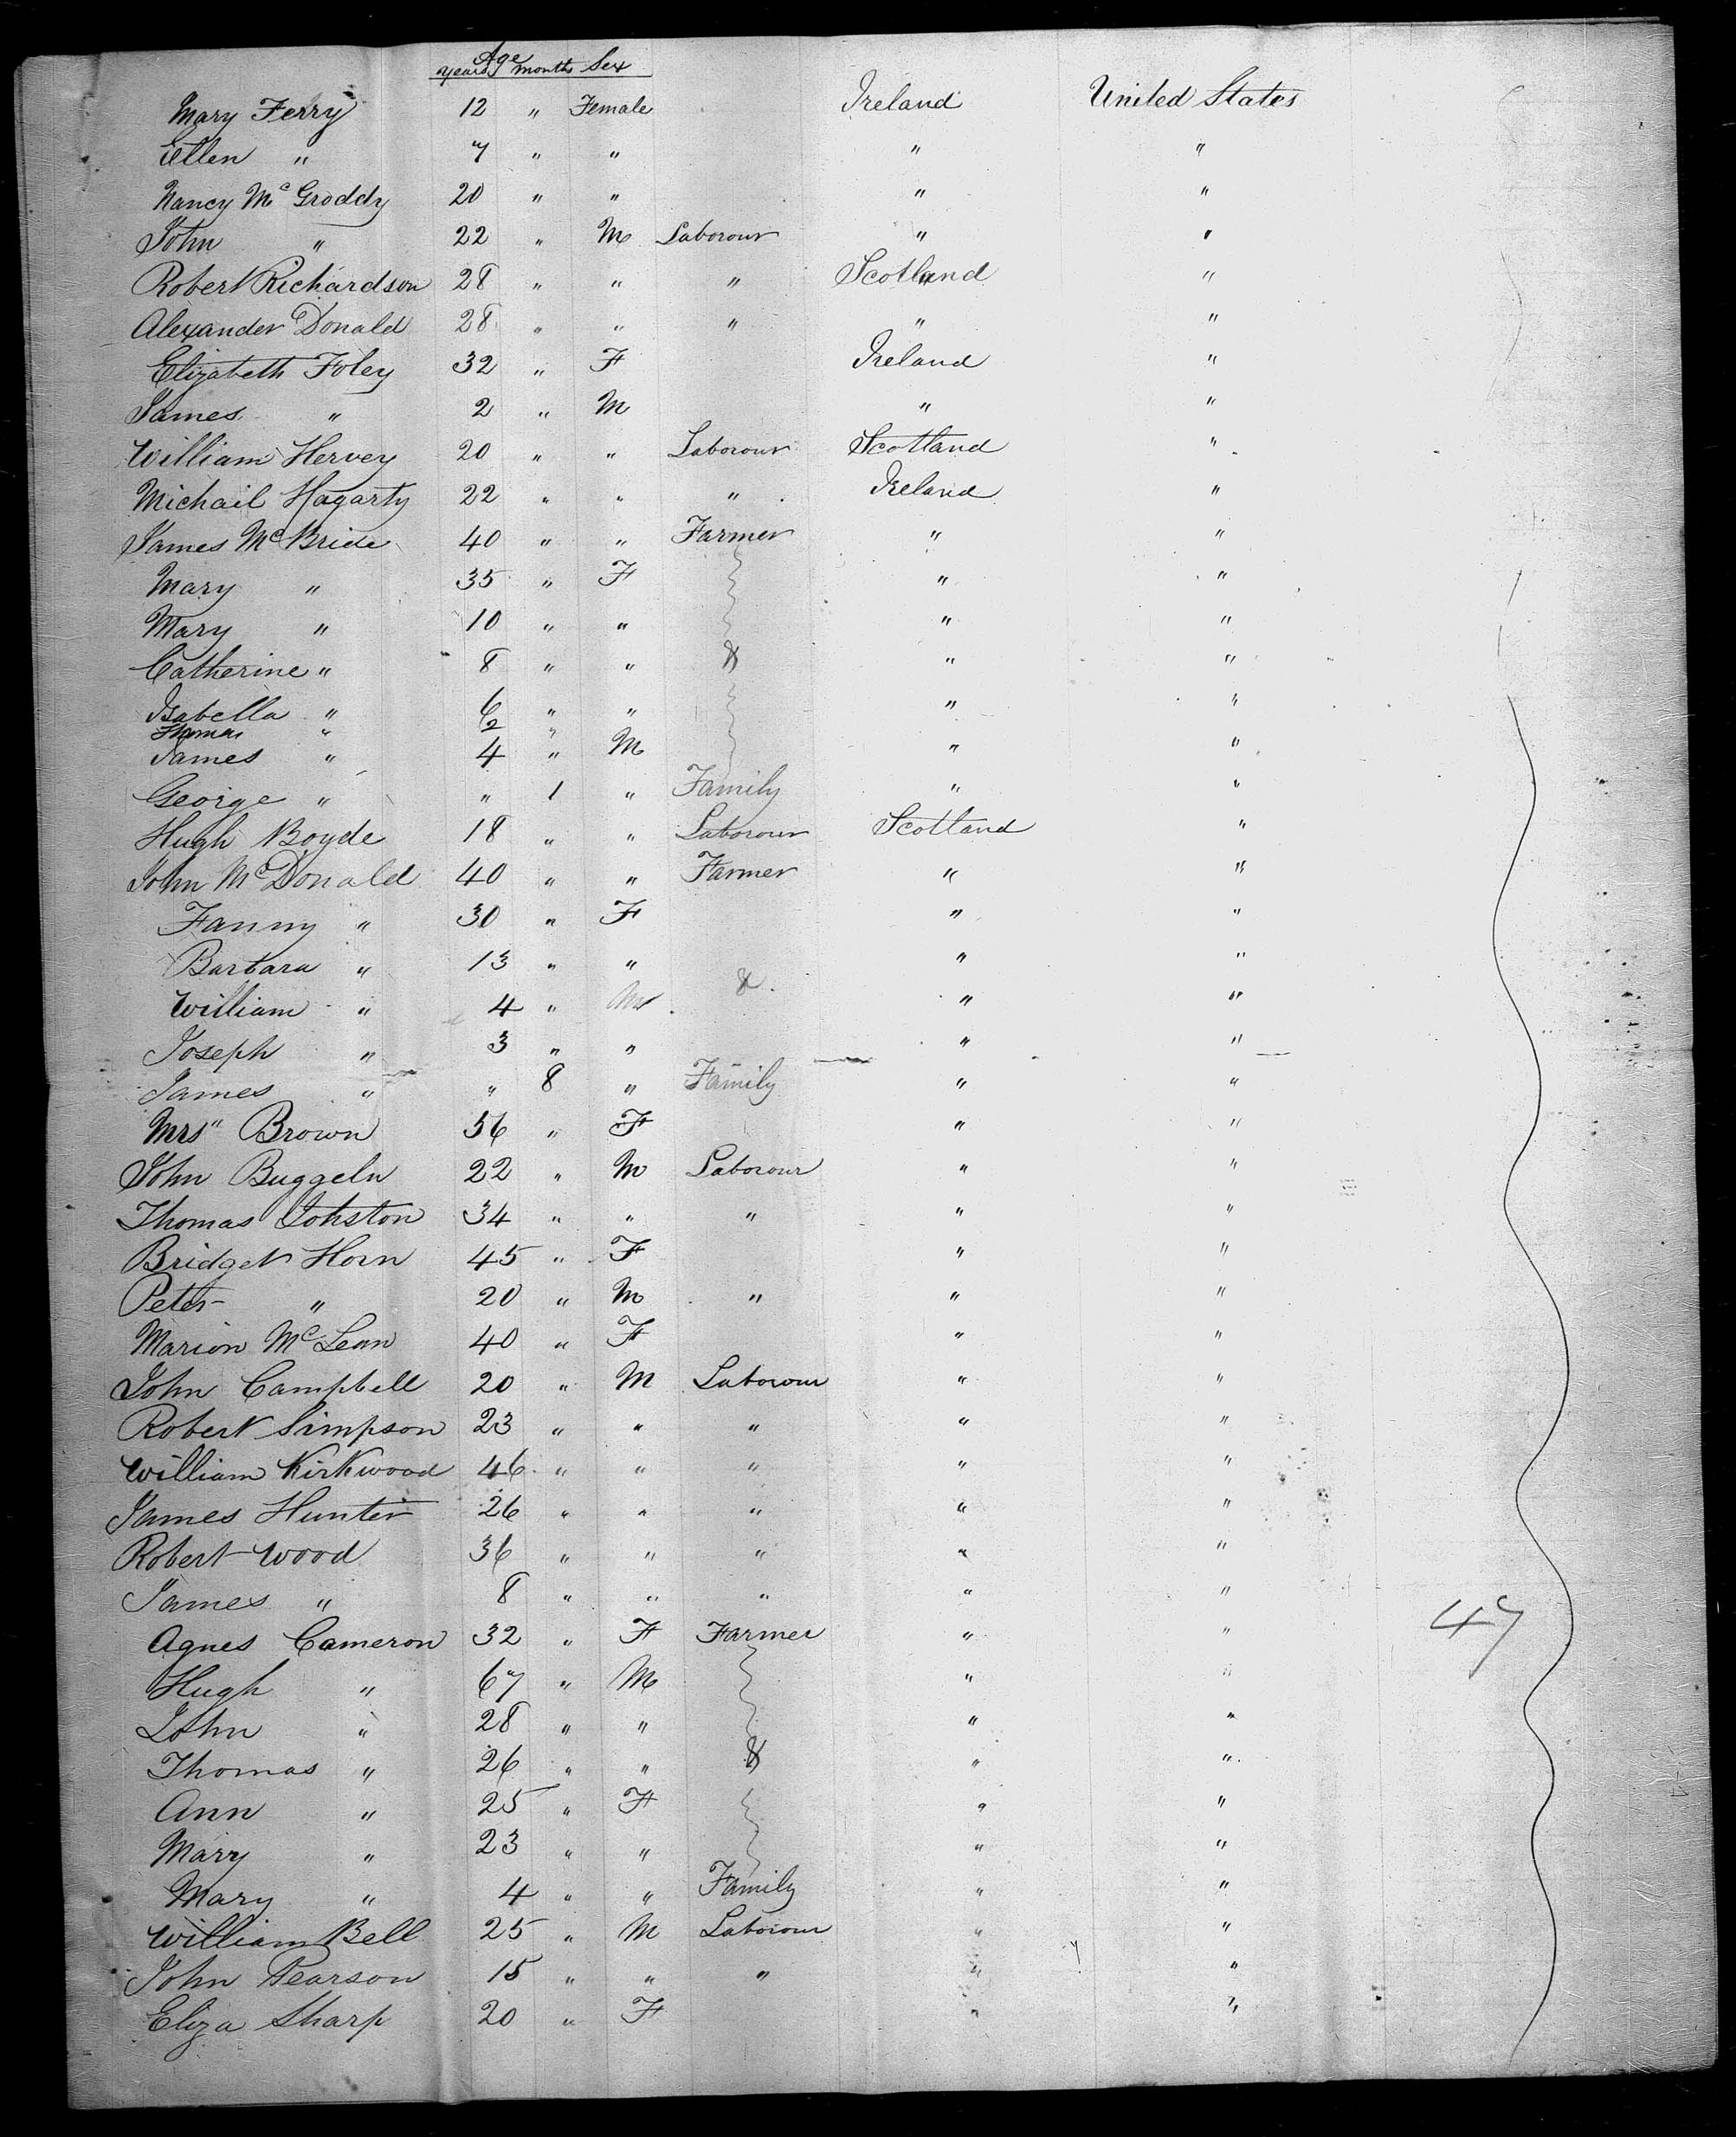 Age
years months Sex
Mary Ferry 12 " Female Ireland United States
Ellen " 7 " " " "
Nancy McGroddy 20 " " " "
John " 22 " M Laborour " "
Robert Richardson 28 " " " Scotland "
Alexander Donald 28 " " " " "
Elizabeth Foley 32 " F Ireland "
James " 2 " M " "
William Hervey 20 " " Laborour Scotland "
Michail Hagarty 22 " " " Ireland "
James McBride 40 " " Farmer " "
Mary " 35 " F " "
Mary " 10 " " " "
Catherine " 8 " " & " "
Isabella " 6 " " " "
" 2 "
James " 4 " M " "
George " " 1 " Family " "
Hugh Boyde 18 " " Laborour Scotland "
John McDonald 40 " " Farmer " "
Fanny " 30 " F " "
Barbara " 13 " " " "
William " 4 " M & " "
Joseph " 3 " " " "
James " " 8 " Family " "
Mrs" Brown 56 " F " "
John Buggeln 22 " M Laborour " "
Thomas Johston 34 " " " " "
Bridget Horn 45 " F " "
Peter " 20 " M " " "
Marion McLean 40 " F " "
John Campbell 20 " M Laborour " "
Robert Simpson 23 " " " " "
William Kirkwood 46 " " " " "
James Hunter 26 " " " " "
Robert Wood 36 " " " " "
James " 8 " " " " "
Agnes Cameron 32 " F Farmer " " 47
Hugh " 67 " M " "
John " 28 " " " "
Thomas " 26 " " & " "
Ann " 25 " F " "
Mary " 23 " " " "
Mary " 4 " " Family " "
William Bell 25 " M Laborour " "
John Pearson 15 " " " " "
Eliza Sharp 20 " F " "